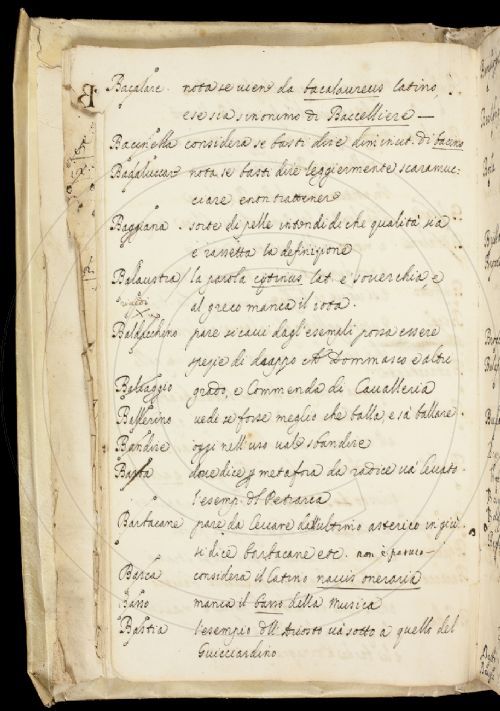 B
Bacalare. nota se vien da bacalaureus latino,
e se sia sinonimo di Baccelliere —
Bacinella considera se basti dire diminut. di bacino
Badaluccare nota se basti dire leggiermente scaramuc:
ciare e non trattenere
Baggiana. sorte di pelle intendi di che qualità sia
e rassetta la definizione
Balaustra / la parola cytinus lat. e' soverchia, e
vedi al greco manca il iota.
Baldacchino pare si cavi dagl'esempli possa essere
spezie di drappo
Baliaggio grado, e Commenda di Cavalleria
Ballerino vedi se forse meglio che balla, e sà ballare
Bandire oggi nell'uso vale sbandire
Barba dove dice metafora da radice và levato
l'esemp. del Petrarca
Barbacane pare da levare dall'ultimo asterico in giù
si dice barbacane etc. non è potuto —
Barca considera il latino navis oneraria
Basso manca il basso della musica
Bastia l'esempio dell'Ariosto và sotto a quello del
Guicciardino